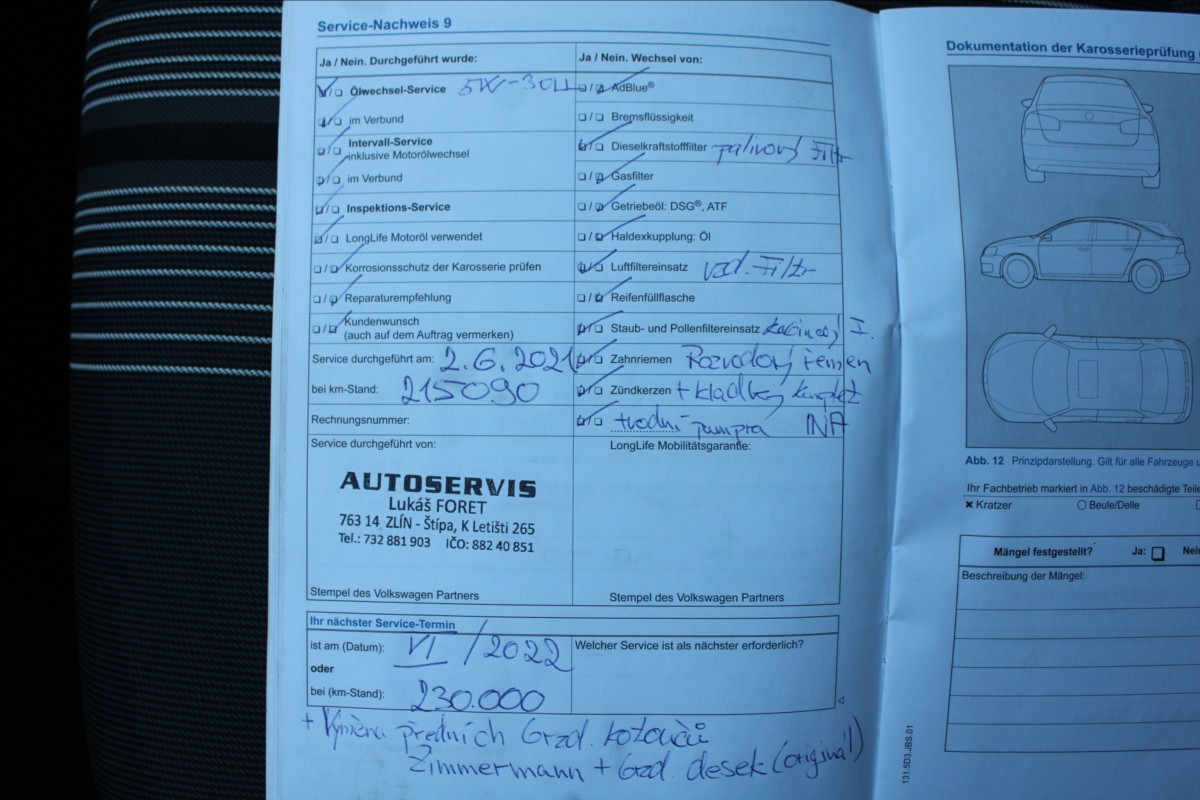 Service-Nachweis 9
Ja / Nein. Durchgeführt wurde:
Ölwechsel-Service 5W-30LL
im Verbund
Intervall-Service
inklusive Motorölwechsel
im Verbund
Inspektions-Service
LongLife Motoröl verwendet
Korrosionsschutz der Karosserie prüfen
Reparaturempfehlung
Kundenwunsch
(auch auf dem Auftrag vermerken)
Service durchgeführt am: 2.6.2021
bei km-Stand: 215090
Rechnungsnummer:
Service durchgeführt von:
AUTOSERVIS
Lukáš FORET
763 14 ZLÍN - Štípa, K Letišti 265
Tel.: 732 881 903 IČO: 882 40 851
Stempel des Volkswagen Partners
Ja / Nein. Wechsel von:
AdBlue®
Bremsflüssigkeit
Dieselkraftstofffilter palivový Filtr
Gasfilter
Getriebeöl: DSG®, ATF
Haldexkupplung: Öl
Luftfiltereinsatz vzd. Filtr
Reifenfüllflasche
Staub- und Pollenfiltereinsatz kabinový
Zahnriemen Rozvodový řemen
Zündkerzen + kladky komplet
+vodní pumpa INA
LongLife Mobilitätsgarantie:
Stempel des Volkswagen Partners
Ihr nächster Service-Termin
ist am (Datum): VI /2022
oder
bei (km-Stand): 230.000
Welcher Service ist als nächster erforderlich?
+ Výměna předních brzd. kotoučů
Zimmermann + brzd. desek (originál)
Dokumentation der Karosserieprüfung
Abb. 12 Prinzipdarstellung. Gilt für alle Fahrzeuge
Ihr Fachbetrieb markiert in Abb. 12 beschädigte Teile
Kratzer
Beule/Delle
Mängel festgestellt? Ja: Nein
Beschreibung der Mängel:
131.5D3.JBS.01